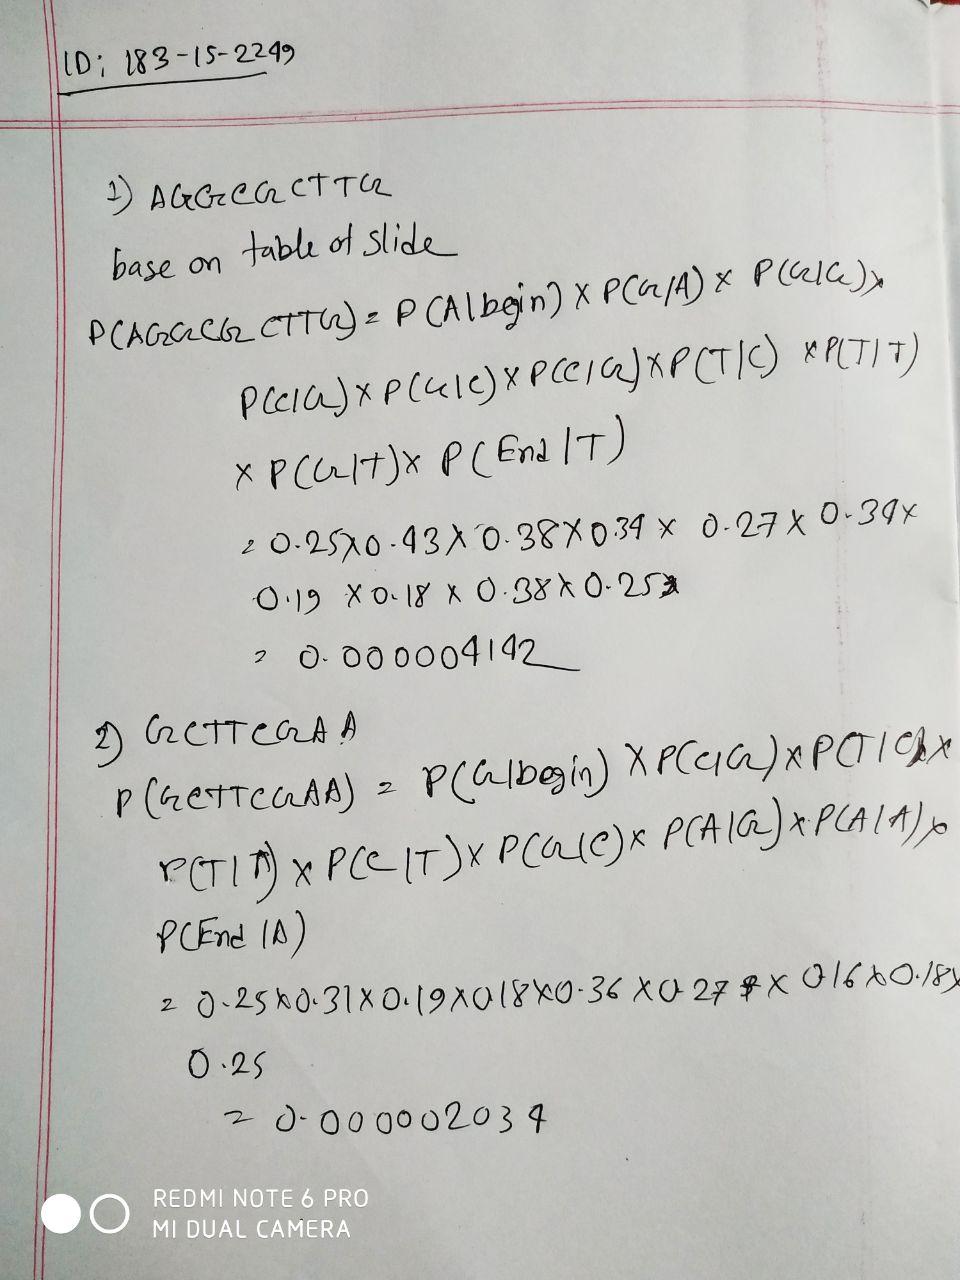 ID: 183-15-2249
1) AGGCGCTTG
base on table of slide
P(AGGCGCTTG) = P(A|begin) × P(G/A) × P(G|G) ×
P(C|G) × P(G|C) × P(C|G) × P(T|C) × P(T|T)
× P(G|T) × P(End|T)
= 0.25×0.43×0.38×0.34× 0.27× 0.34×
0.19 ×0.18 × 0.38×0.25
= 0.000004142
2) GCTTCGAA
P(GCTTCGAA) = P(G|begin) × P(C|G) × P(T|C) ×
P(T|T) × P(C|T) × P(G|C) × P(A|G) × P(A|A) ×
P(End|A)
= 0.25×0.31×0.19×0.18×0.36×0.27 × 0.16×0.18×
0.25
= 0.000002034
REDMI NOTE 6 PRO
MI DUAL CAMERA